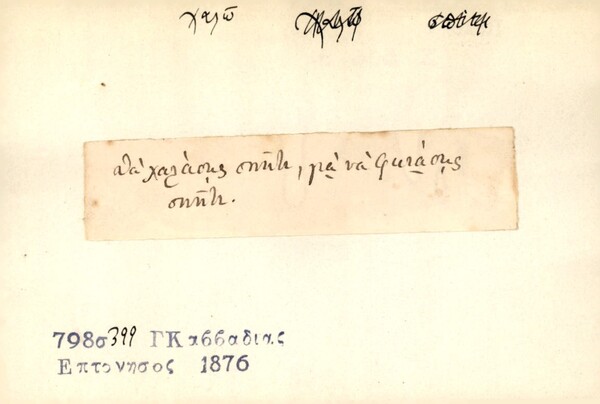 χαλῶ
νὰ χαλάσῃς σπῆτι, μὰ νὰ φκιάσῃς
σπῆτι.
798σ399 ΓΚαββαδιας
Επτονησος 1876